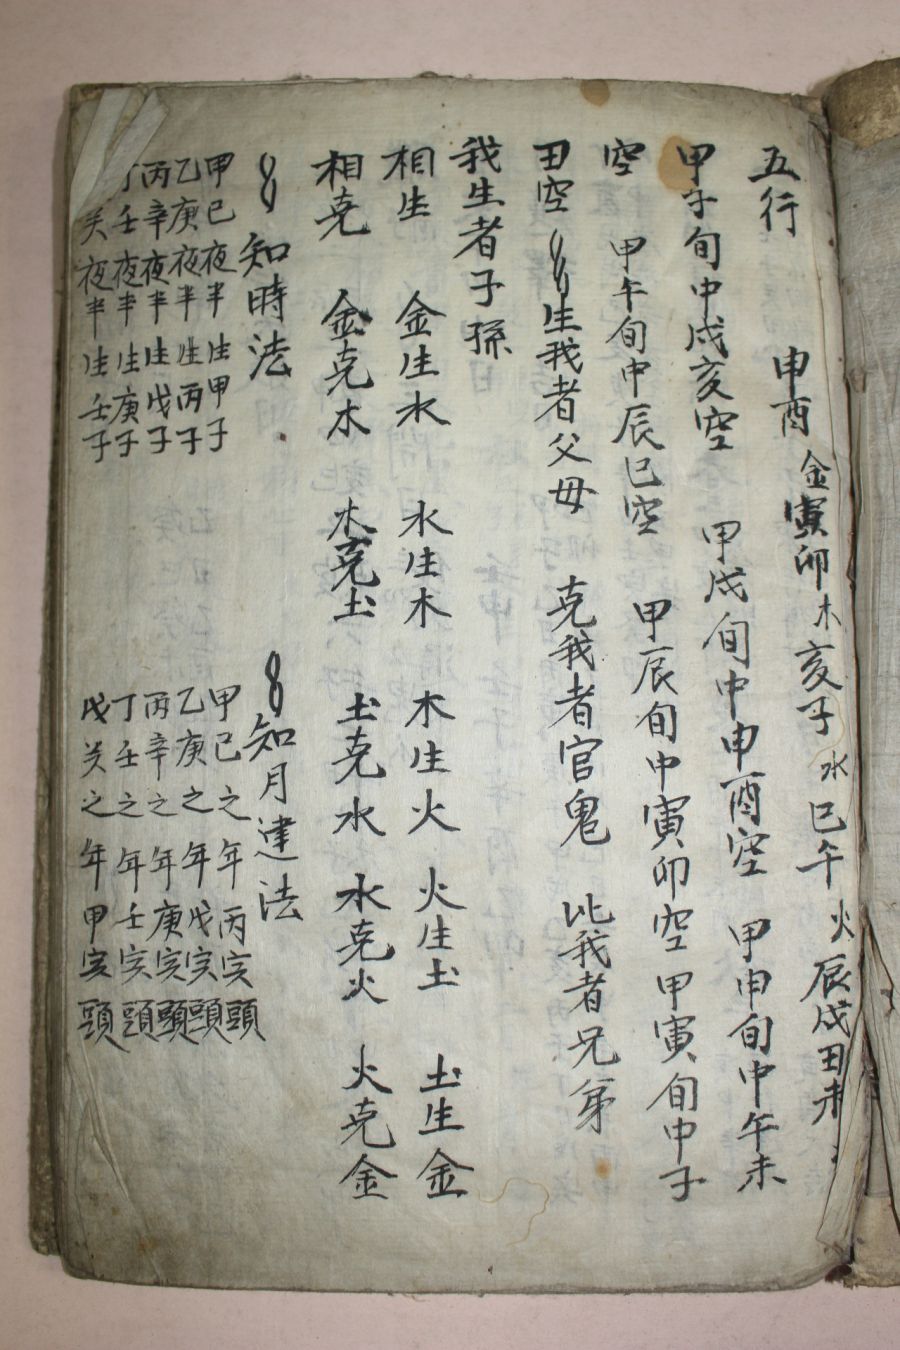 五行　申酉金寅卯木亥子水巳午火辰戌田未
甲子旬中戌亥空　甲戌旬中申酉空　甲申旬中午未
空　甲午旬中辰巳空　甲辰旬中寅卯空　甲寅旬中子
田空　生我者父母　克我者官鬼　比我者兄弟
我生者子孫
相生　金生水　水生木　木生火　火生土　土生金
相克　金克木　木克土　土克水　水克火　火克金
知時法
甲己夜半生甲子
乙庚夜半生丙子
丙辛夜半生戊子
丁壬夜半生庚子
癸夜半生壬子
知月建法
甲己之年丙寅頭
乙庚之年戊寅頭
丙辛之年庚寅頭
丁壬之年壬寅頭
戊癸之年甲寅頭